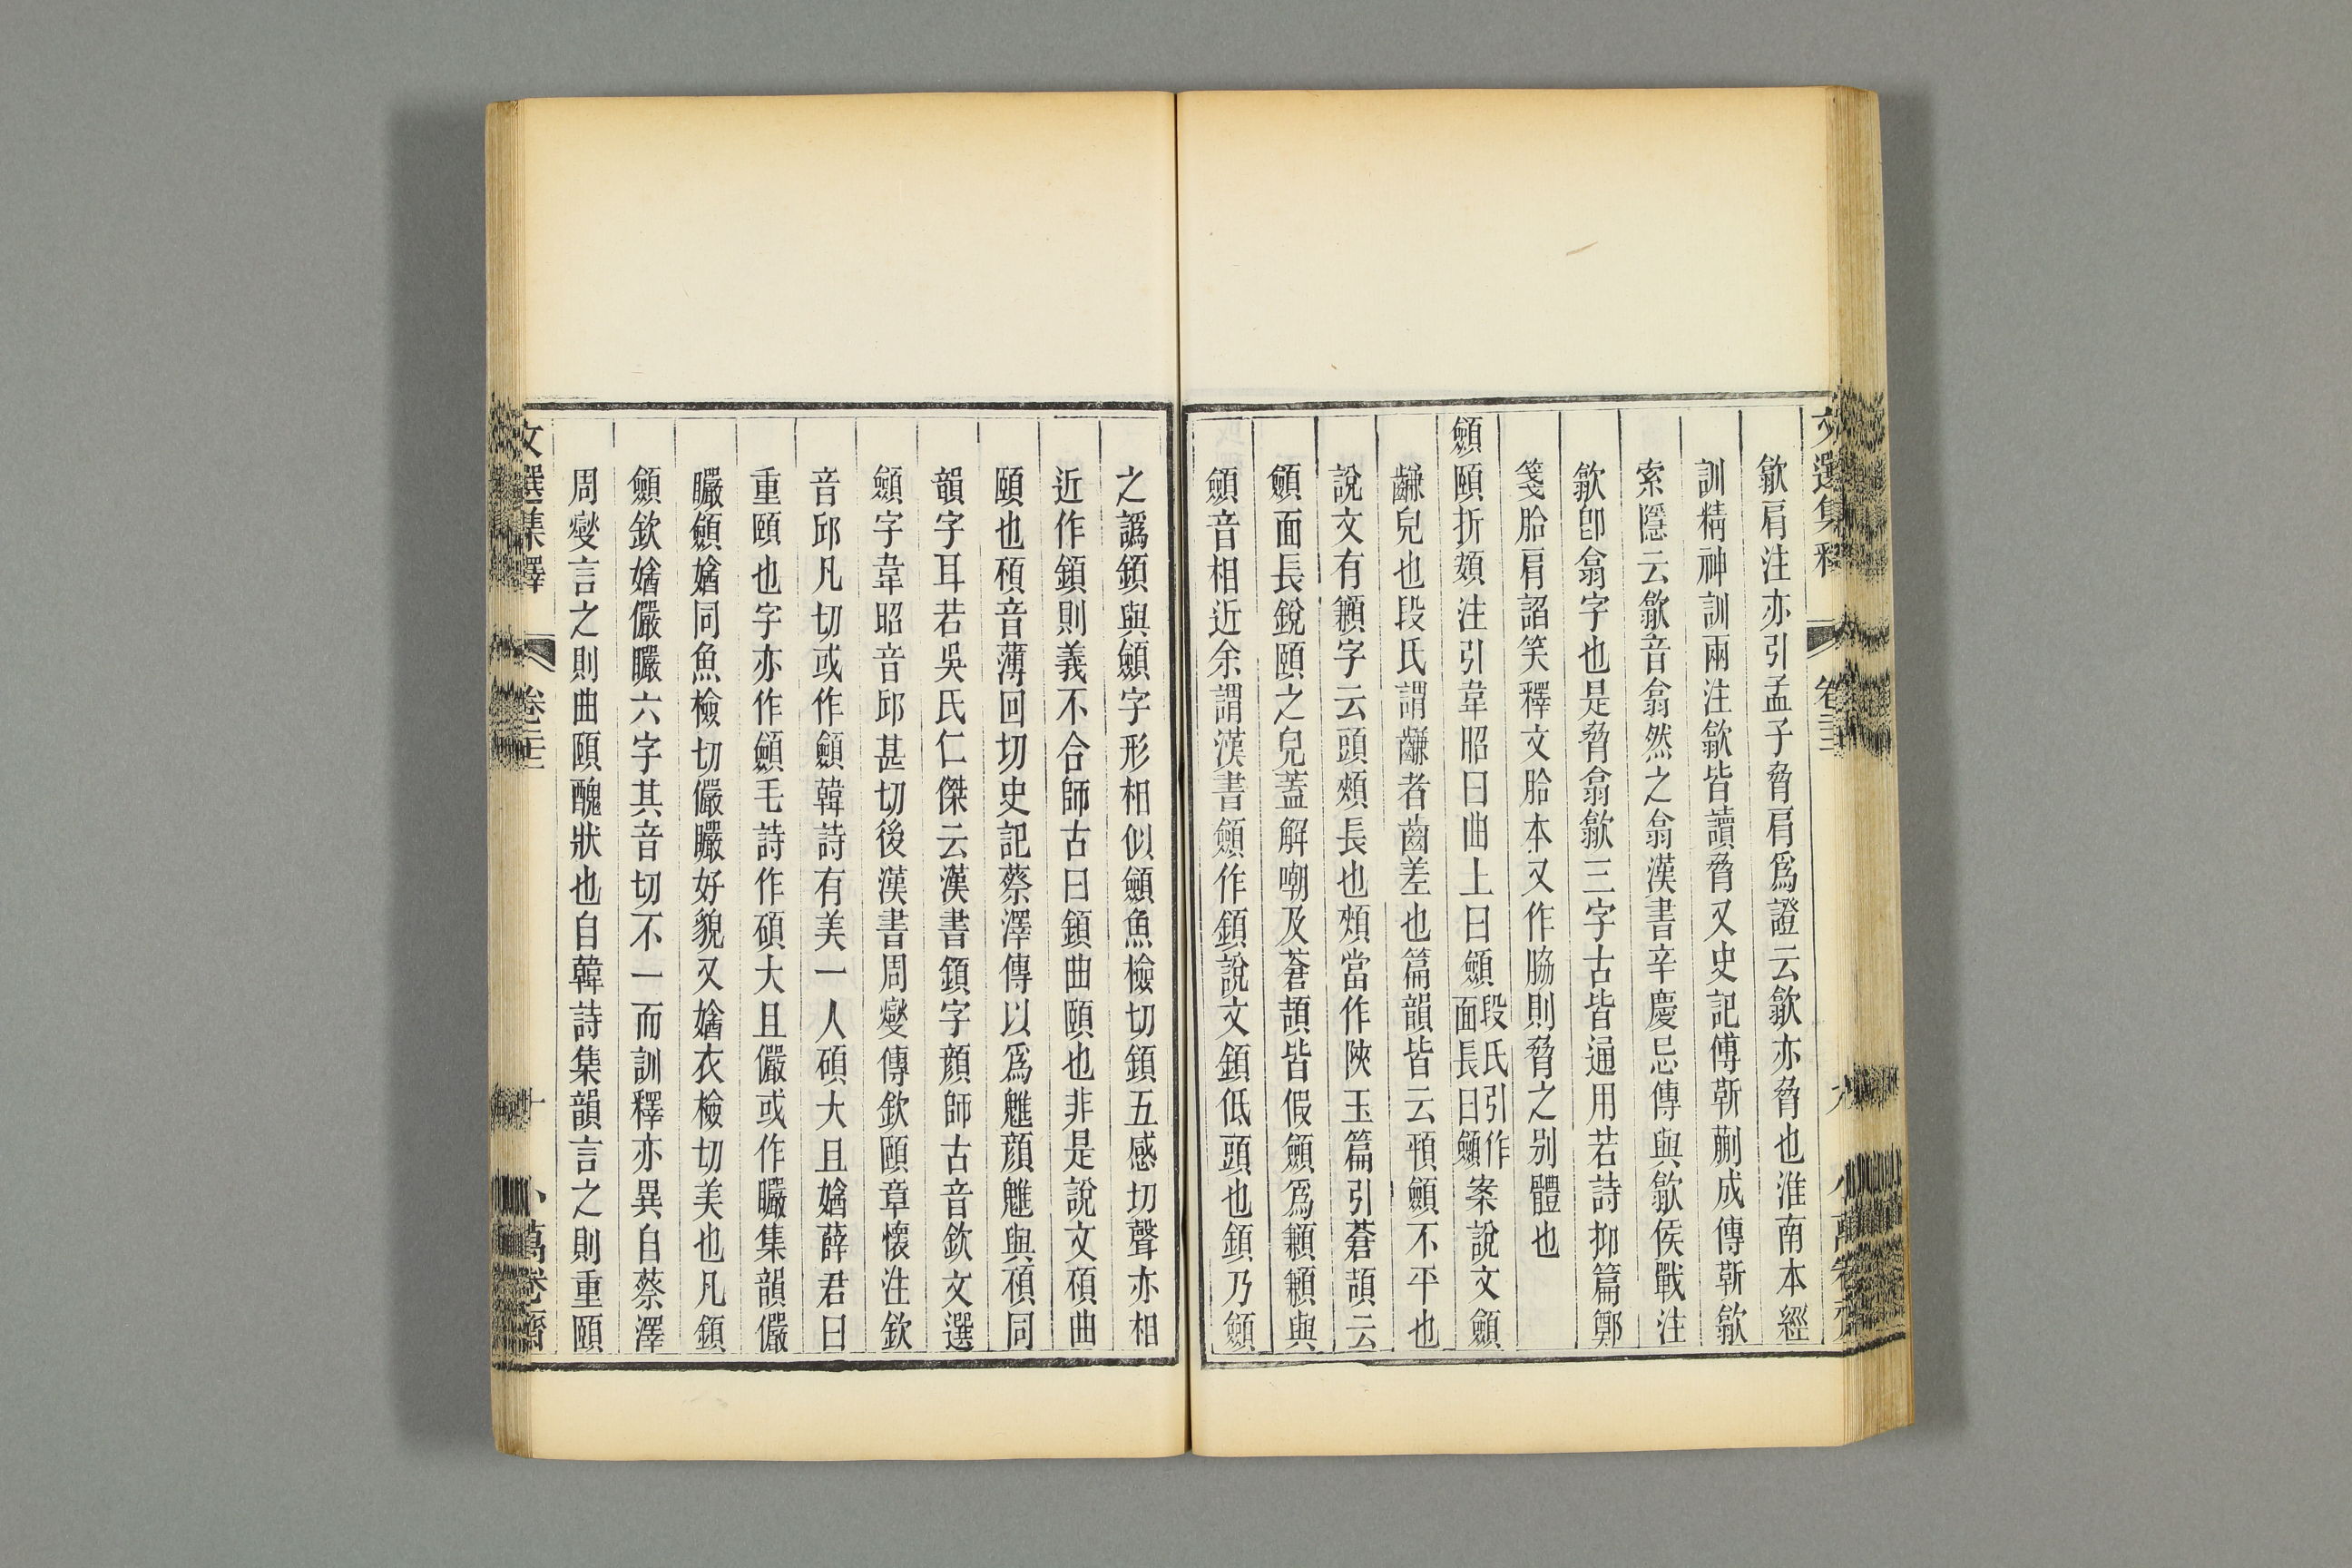 文選集釋 卷二十二 九 小萬卷齋
歙肩注亦引孟子脅肩爲證云歙亦脅也淮南本經
訓精神訓兩注歙皆讀脅又史記傅靳蒯成傳靳歙
索隱云歙音翕然之翕漢書辛慶忌傳與歙侯戰注
歙卽翕字也是脅翕歙三字古皆通用若詩抑篇鄭
箋胎肩諂笑釋文胎本又作脇則脅之别體也
顩頤折頞注引韋昭曰曲上曰顩段氏引作面長曰顩案說文顩
齻皃也段氏謂齻者齒差也篇韻皆云頩顩不平也
說文有顲字云頭頰長也頰當作陝玉篇引蒼頡云
顩面長銳頤之皃蓋解嘲及蒼頡皆假顩爲顲顲與
顩音相近余謂漢書顩作顉說文顉低頭也顉乃顩
之譌顉與顩字形相似顩魚檢切顉五感切聲亦相
近作顉則義不合師古曰顉曲頤也非是說文䪹曲
頤也䪹音薄回切史記蔡澤傳以爲魋顏魋與䪹同
韻字耳若吳氏仁傑云漢書顉字顏師古音欽文選
顩字韋昭音邱甚切後漢書周燮傳欽頤章懷注欽
音邱凡切或作顩韓詩有美一人碩大且㜝薛君曰
重頤也字亦作顩毛詩作碩大且儼或作曮集韻儼
曮顩㜝同魚檢切儼曮好貌又㜝衣檢切美也凡顉
顩欽㜝儼曮六字其音切不一而訓釋亦異自蔡澤
周燮言之則曲頤醜狀也自韓詩集韻言之則重頤
文選集釋 卷二十二 十 小萬卷齋